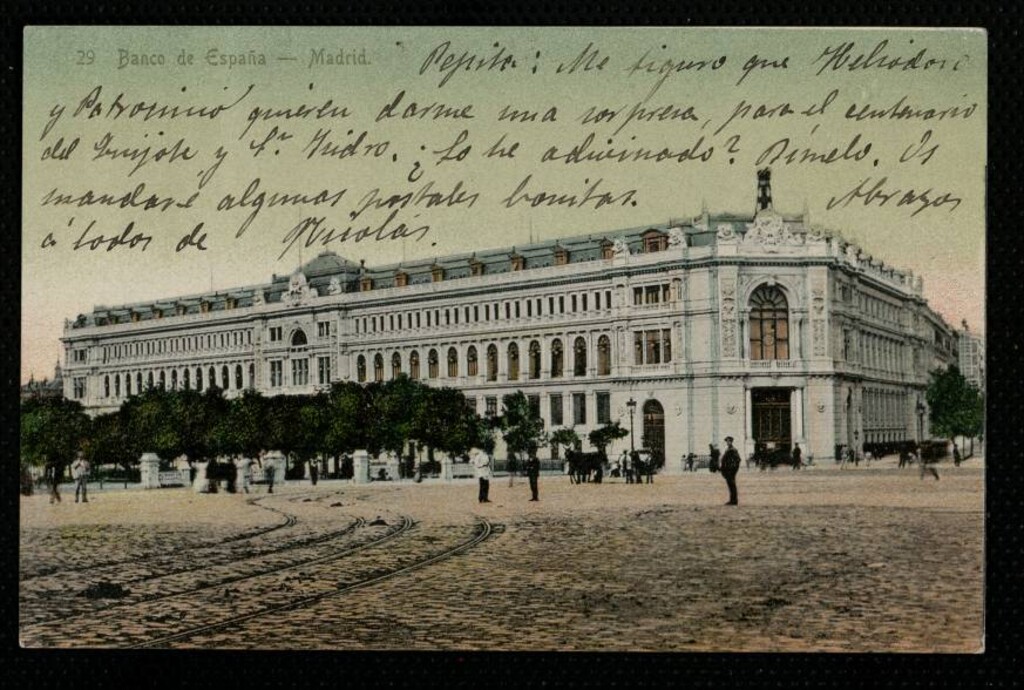 29 Banco de España — Madrid.
Pepita: Me figuro que Heliodoro
y Patrocinio quieren darme una sorpresa, para el centenario
del Quijote y Sn. Ysidro. ¿Lo he adivinado? Dímelo. Os
mandaré algunas postales bonitas. Abrazos
á todos de Nicolás.